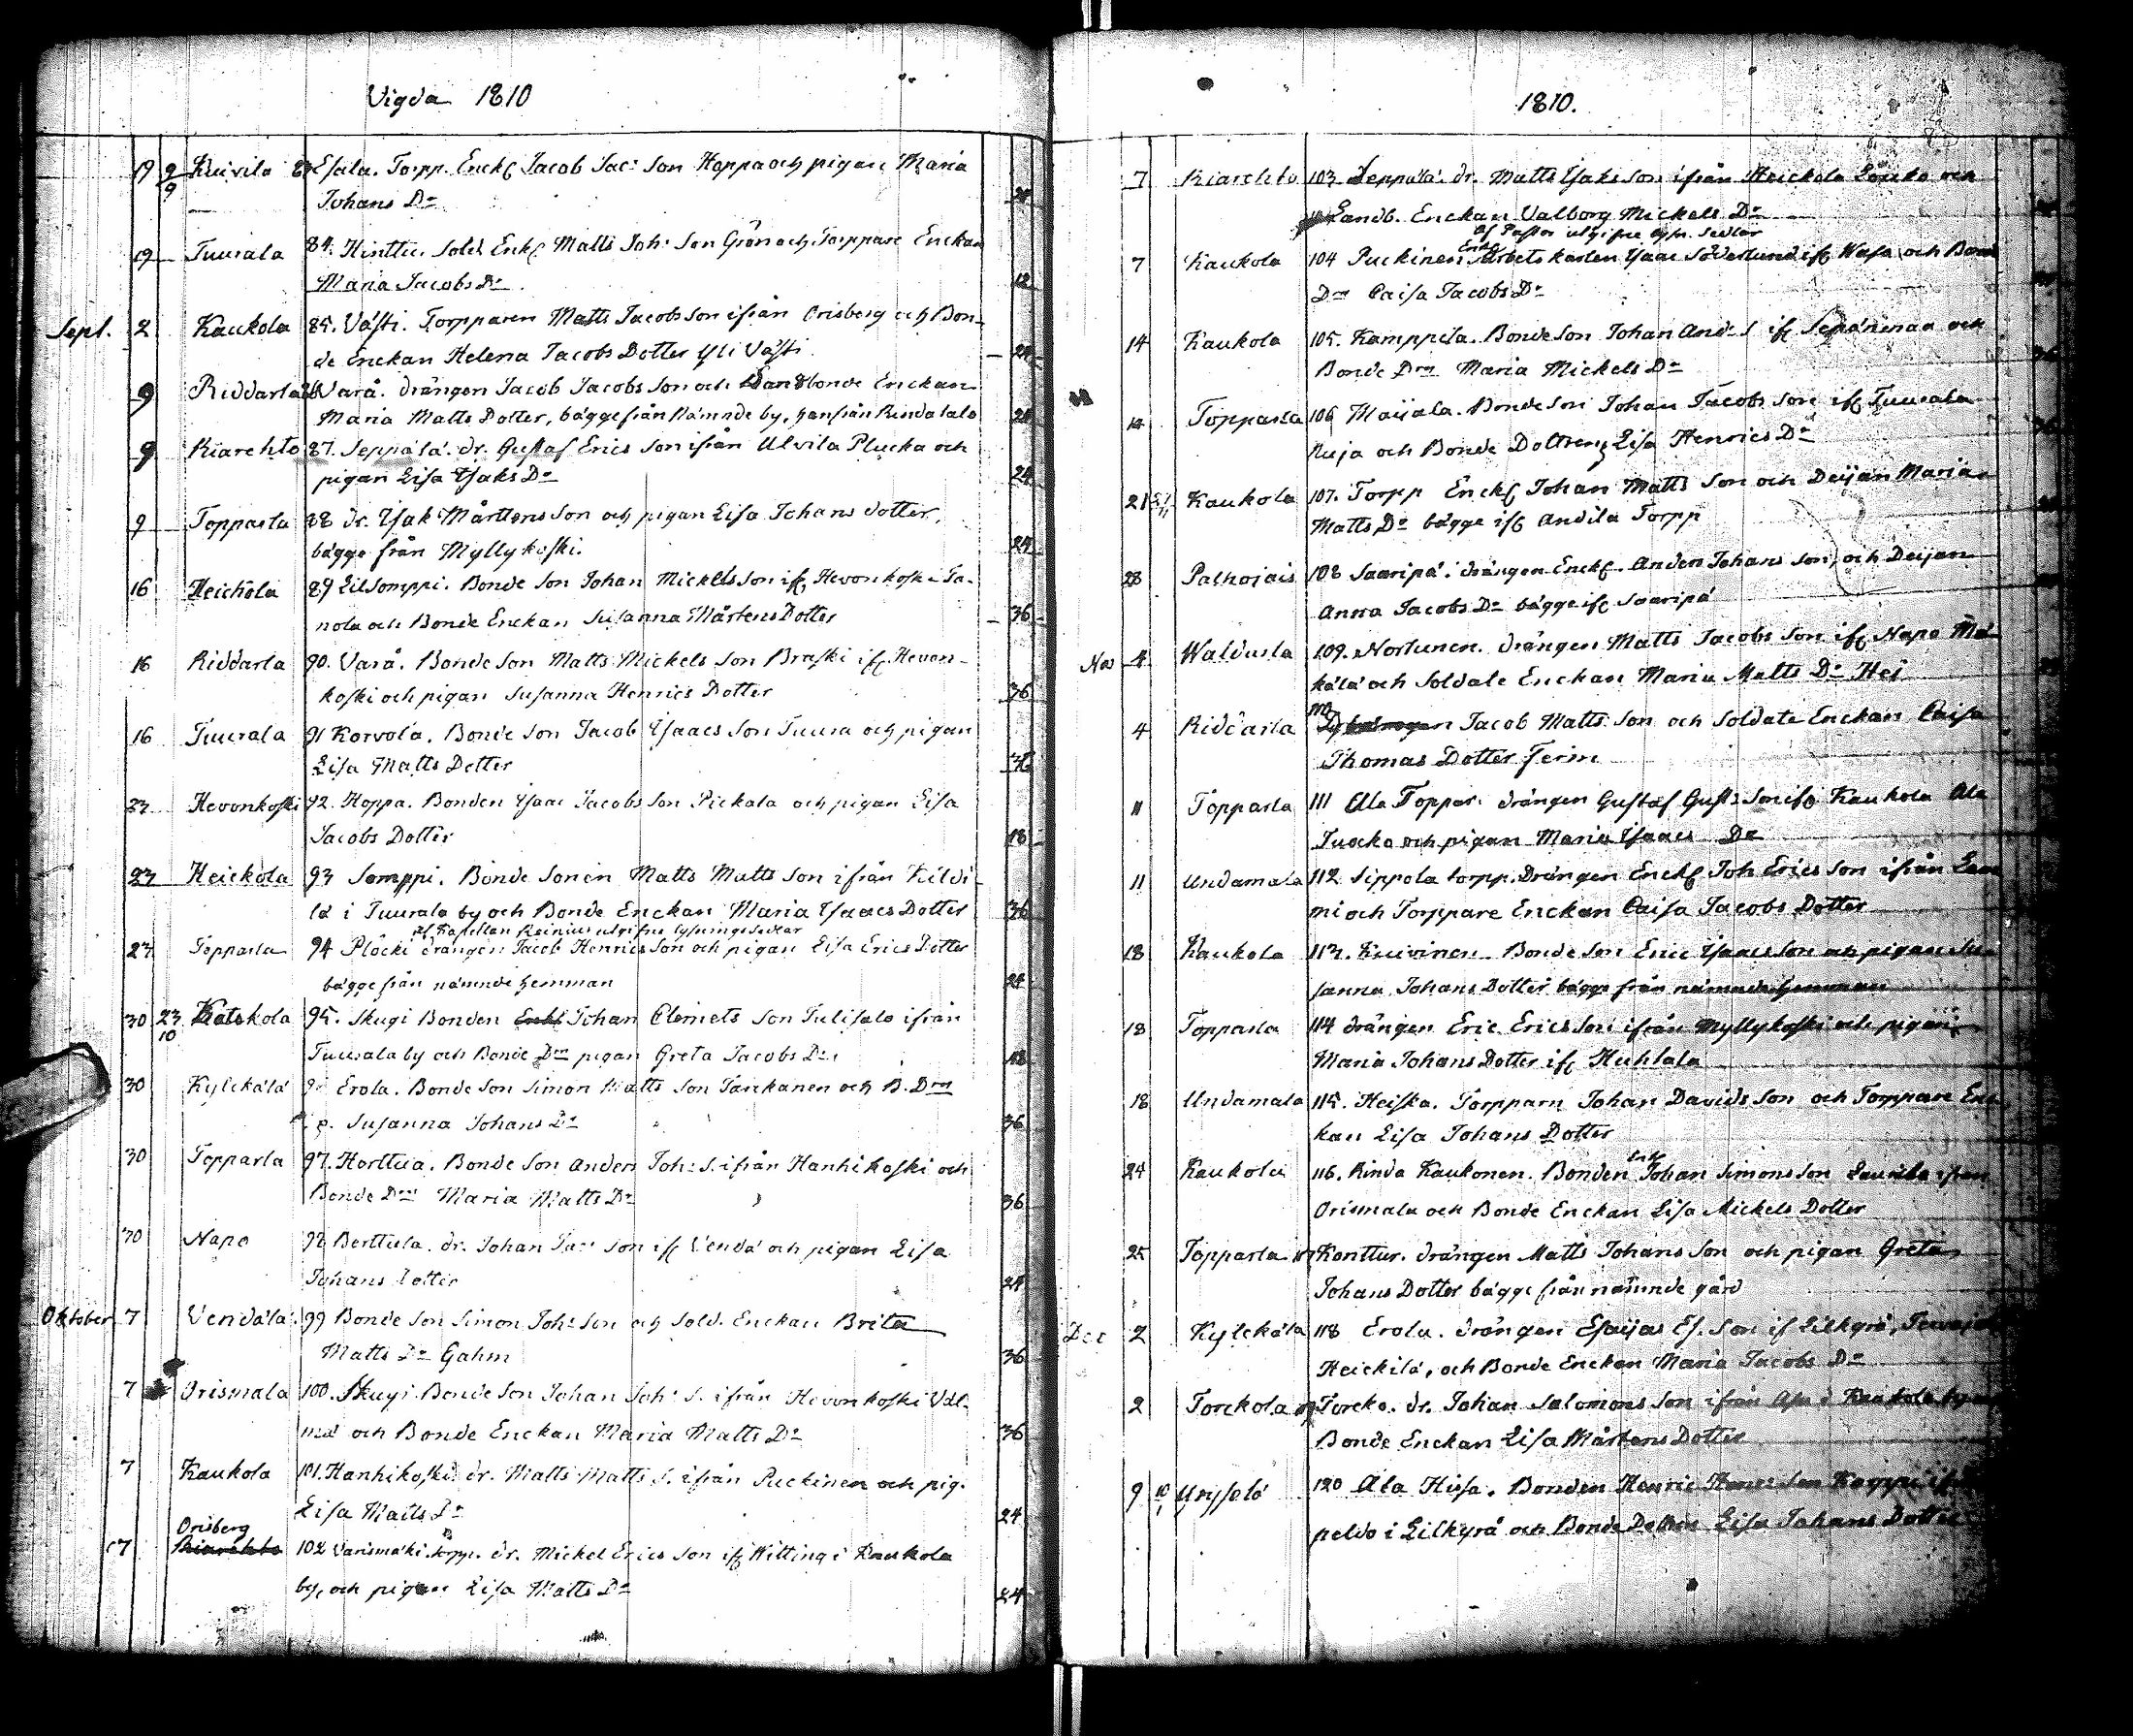 Vigda 1810
19 9/9 Kuivila 83 Esala. Torp. Enckl Jacob Jac: Son Hoppa och pigan Maria
Johans Dr 24
19 Tuurala 84. Hinttu. Sold. Enkl Matts Joh: Son Grön och Torppare Enckan
Maria Jacobs Dr 12
Sept. 2 Kaukola 85. Västi. Torpparen Matts Jacobs Son ifrån Orisberg och Bon-
de Enckan Helena Jacobs Dotter Yli Västi 24
9 Riddarla 86 Varå. drängen Jacob Jacobs Son och Landbonde Enckan
Maria Matts Dotter, bägge från Nämnde by, han från Rindasalo 24
9 Kiarehto 87. Seppälä. dr. Gustaf Erics Son ifrån Ulvila Plucka och
pigan Lisa Isaks Dr 24
9 Topparla 88 dr. Isak Mårttens Son och pigan Lisa Johans dotter,
bägge från Myllykoski. 24
16 Heickola 89 Lilsomppi. Bonde Son Johan Mickels Son ifl Hevonkoski Ta-
nola och Bonde Enckan Susanna Mårtens Dotter 36
16 Riddarla 90. Varå. Bonde Son Matts Mickels Son Braski ifl Hevon-
koski och pigan Susanna Henrics Dotter 36
16 Tuurala 91 Korvola. Bonde Son Jacob Isaacs Son Tuura och pigan
Lisa Matts Dotter 36
23 Hevonkoski 92. Hoppa. Bonden Isaac Jacobs Son Pickala och pigan Lisa
Jacobs Dotter 18
23 Heickola 93 Somppi. Bonde Sonen Matts Matts Son ifrån Kildi-
lä i Tuurala by och Bonde Enckan Maria Isaacs Dotter 36
af Kapellan Reinius utgifne lysningssedlar
23 Topparla 94 Plöcki drängen Jacob Henrics Son och pigan Lisa Erics Dotter
bägge från nämnde hemman 24
30 23/10 Kotskola 95. Skugi Bonden Enkl Johan Clemets Son Tulisalo ifrån
Tuurala by och Bonde Drn pigan Greta Jacobs Dr 18
30 Kylckälä Erola. Bonde Son Simon Matts Son Tanckanen och B. Drn
p. Susanna Johans Dr 36
30 Topparla 97. Horttua. Bonde Son Anders Joh: S. ifrån Hanhikoski och
Bonde Drn Maria Matts Dr 36
30 Napo 98 Berttula. dr. Johan Jac: Son ifl Vendä och pigan Lisa
Johans Dotter 24
Oktober 7 Vendälä 99 Bonde Son Simon Joh: Son och Sold. Enckan Brita
Matts Dr Gahm 36
7 Orismala 100. Skugi Bonde Son Johan Joh: S. ifrån Hevonkoski Väl-
mä och Bonde Enckan Maria Matts Dr 36
7 Kaukola 101. Hanhikoski dr. Matts Matts S. ifrån Puckinen och pig.
Lisa Matts Dr 24
Orisberg
7 Kiarehto 102 Varismäki torpp. dr. Mickel Erics Son ifl Witting i Kaukola
by, och pigan Lisa Matts Dr 24
1810.
7 Kiarehto 103 Seppälä. dr. Matts Isaks Son ifrån Heickola Loucko och
Landb. Enckan Valborg Mickels Dr
af Pastor utgifne lysn. Sedlar
7 Kaukola 104 Puckinen Enkl Arbets karlen Isaac Söderlund ifl Wasa och Bond
Drn Caisa Jacobs Dr
14 Kaukola 105. Kamppila. Bonde Son Johan And: S ifl Seppänenaa och
Bonde Drn Maria Mickels Dr
14 Topparla 106 Maijala. Bonde Son Johan Jacobs Son ifl Tuurala
Ruja och Bonde Dottren Lisa Henrics Dr
21 Kaukola 107. Torpp Enckl Johan Matts Son och Deijan Maria
Matts Dr bägge ifl Andila Torpp
28 Palhojais 108 Saaripä. drängen Enckl. Anders Johans Son, och Deijan
Anna Jacobs Dr bägge ifl Saaripä
Nov 4 Waldusla 109. Nortunen. drängen Matts Jacobs Son ifl Napo Mä-
kälä och Soldate Enckan Maria Matts Dr Hej
4 Riddarla 110 Jacob Matts Son och Soldate Enckan Caisa
Thomas Dotter Ferm
11 Topparla 111 Ala Toppar. drängen Gustaf Gust: Son ifl Kaukola Ala
Tuocko och pigan Maria Isaacs Dr
11 Undamala 112 Sippola torpp. Drängen Enckl Joh Erics Son ifrån
mi och Torppare Enckan Caisa Jacobs Dotter
18 Kaukola 113. Kuivinen. Bonde Son Eric Isaacs Son och pigan Su-
sanna Johans Dotter bägge från nämnde hemman
18 Topparla 114 drängen Eric Erics Son ifrån Myllykoski och pigan
Maria Johans Dotter ifl Huhtala
18 Undamala 115. Heiska. Torpparn Johan Davids Son och Torppare En-
kan Lisa Johans Dotter
24 Kaukola 116. Rinda Kaukonen. Bonden Enkl Johan Simons Son Laurila ifrån
Orismala och Bonde Enckan Lisa Mickels Dotter
25 Topparla 117 Konttur. drängen Matts Johans Son och pigan Greta
Johans Dotter bägge från nämnde gård
Dec 2 Kylckälä 118 Erola. drängen Esaijas Es. Son if Lillkyrå,
Heickilä, och Bonde Enckan Maria Jacobs Dr
2 Torckola 119 Torcko. dr. Johan Salomons Son ifrån i Kaukola by och
Bonde Enckan Lisa Mårtens Dotter
9 10/1 120 Ala Hissa. Bonden Henric Henr: Son Koppi ifrån
peldo i Lillkyrå och Bonde Dottren Lisa Johans Dotter